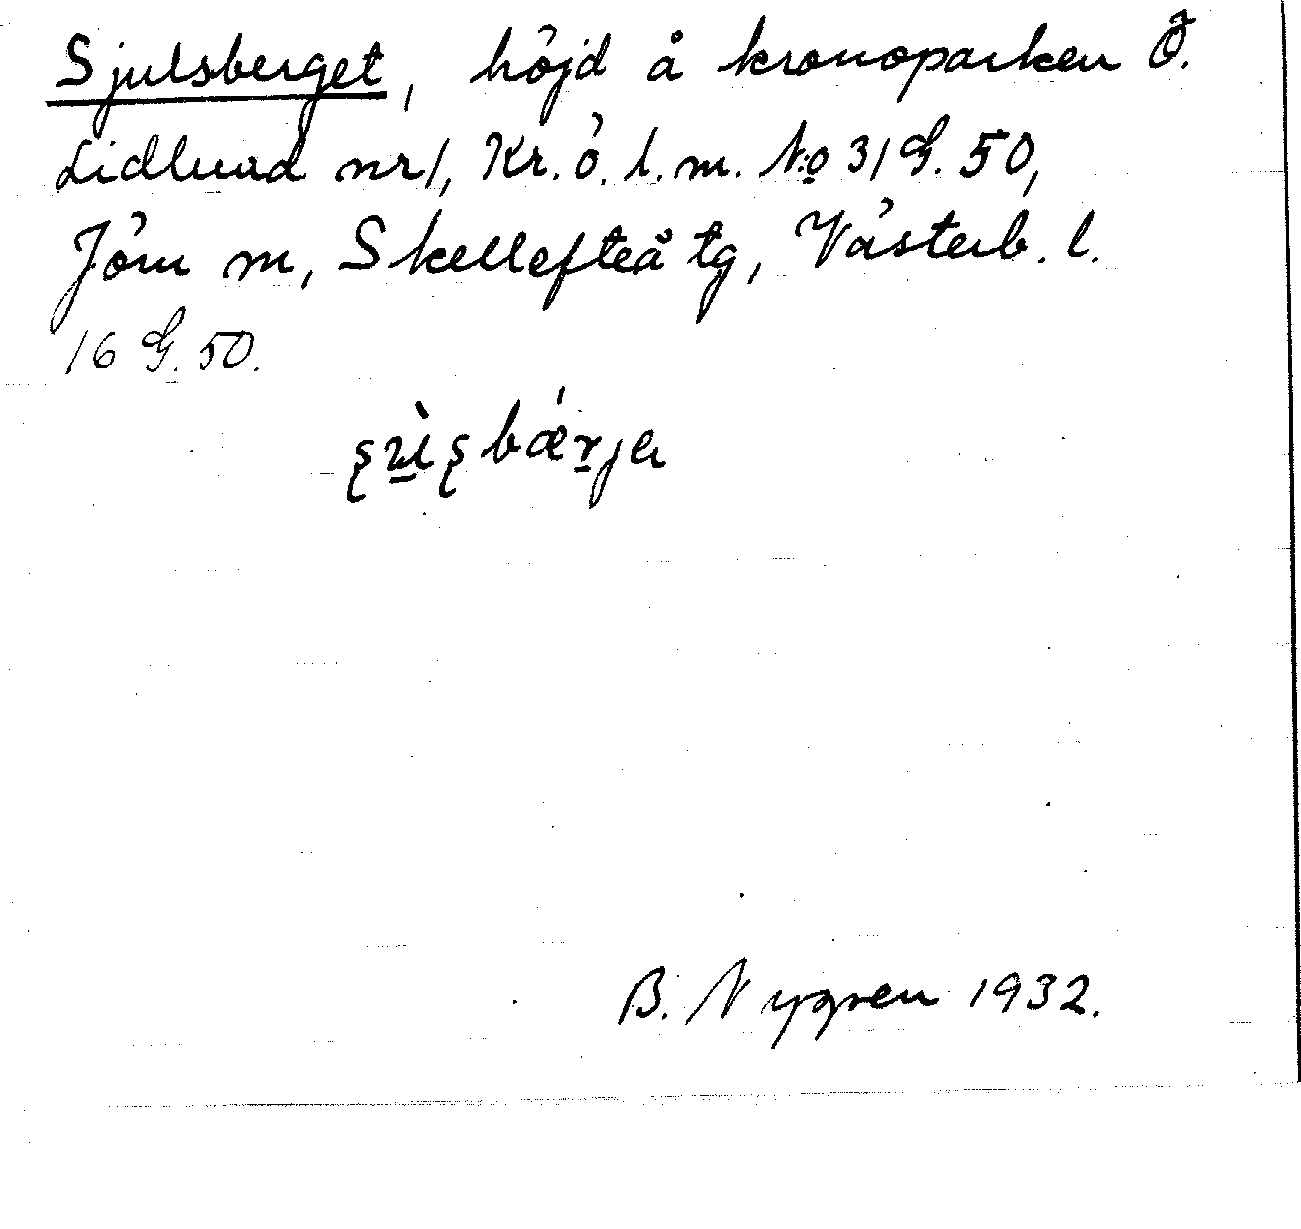 Sjulsberget, höjd å kronoparken Ö.
Lidlund nr 1, Kr. ö. l. m. No 31 G. 50,
Jörn m, Skellefteå tg, Västerb. l.
16 G. 50.
bǽrja
B. Nygren 1932.